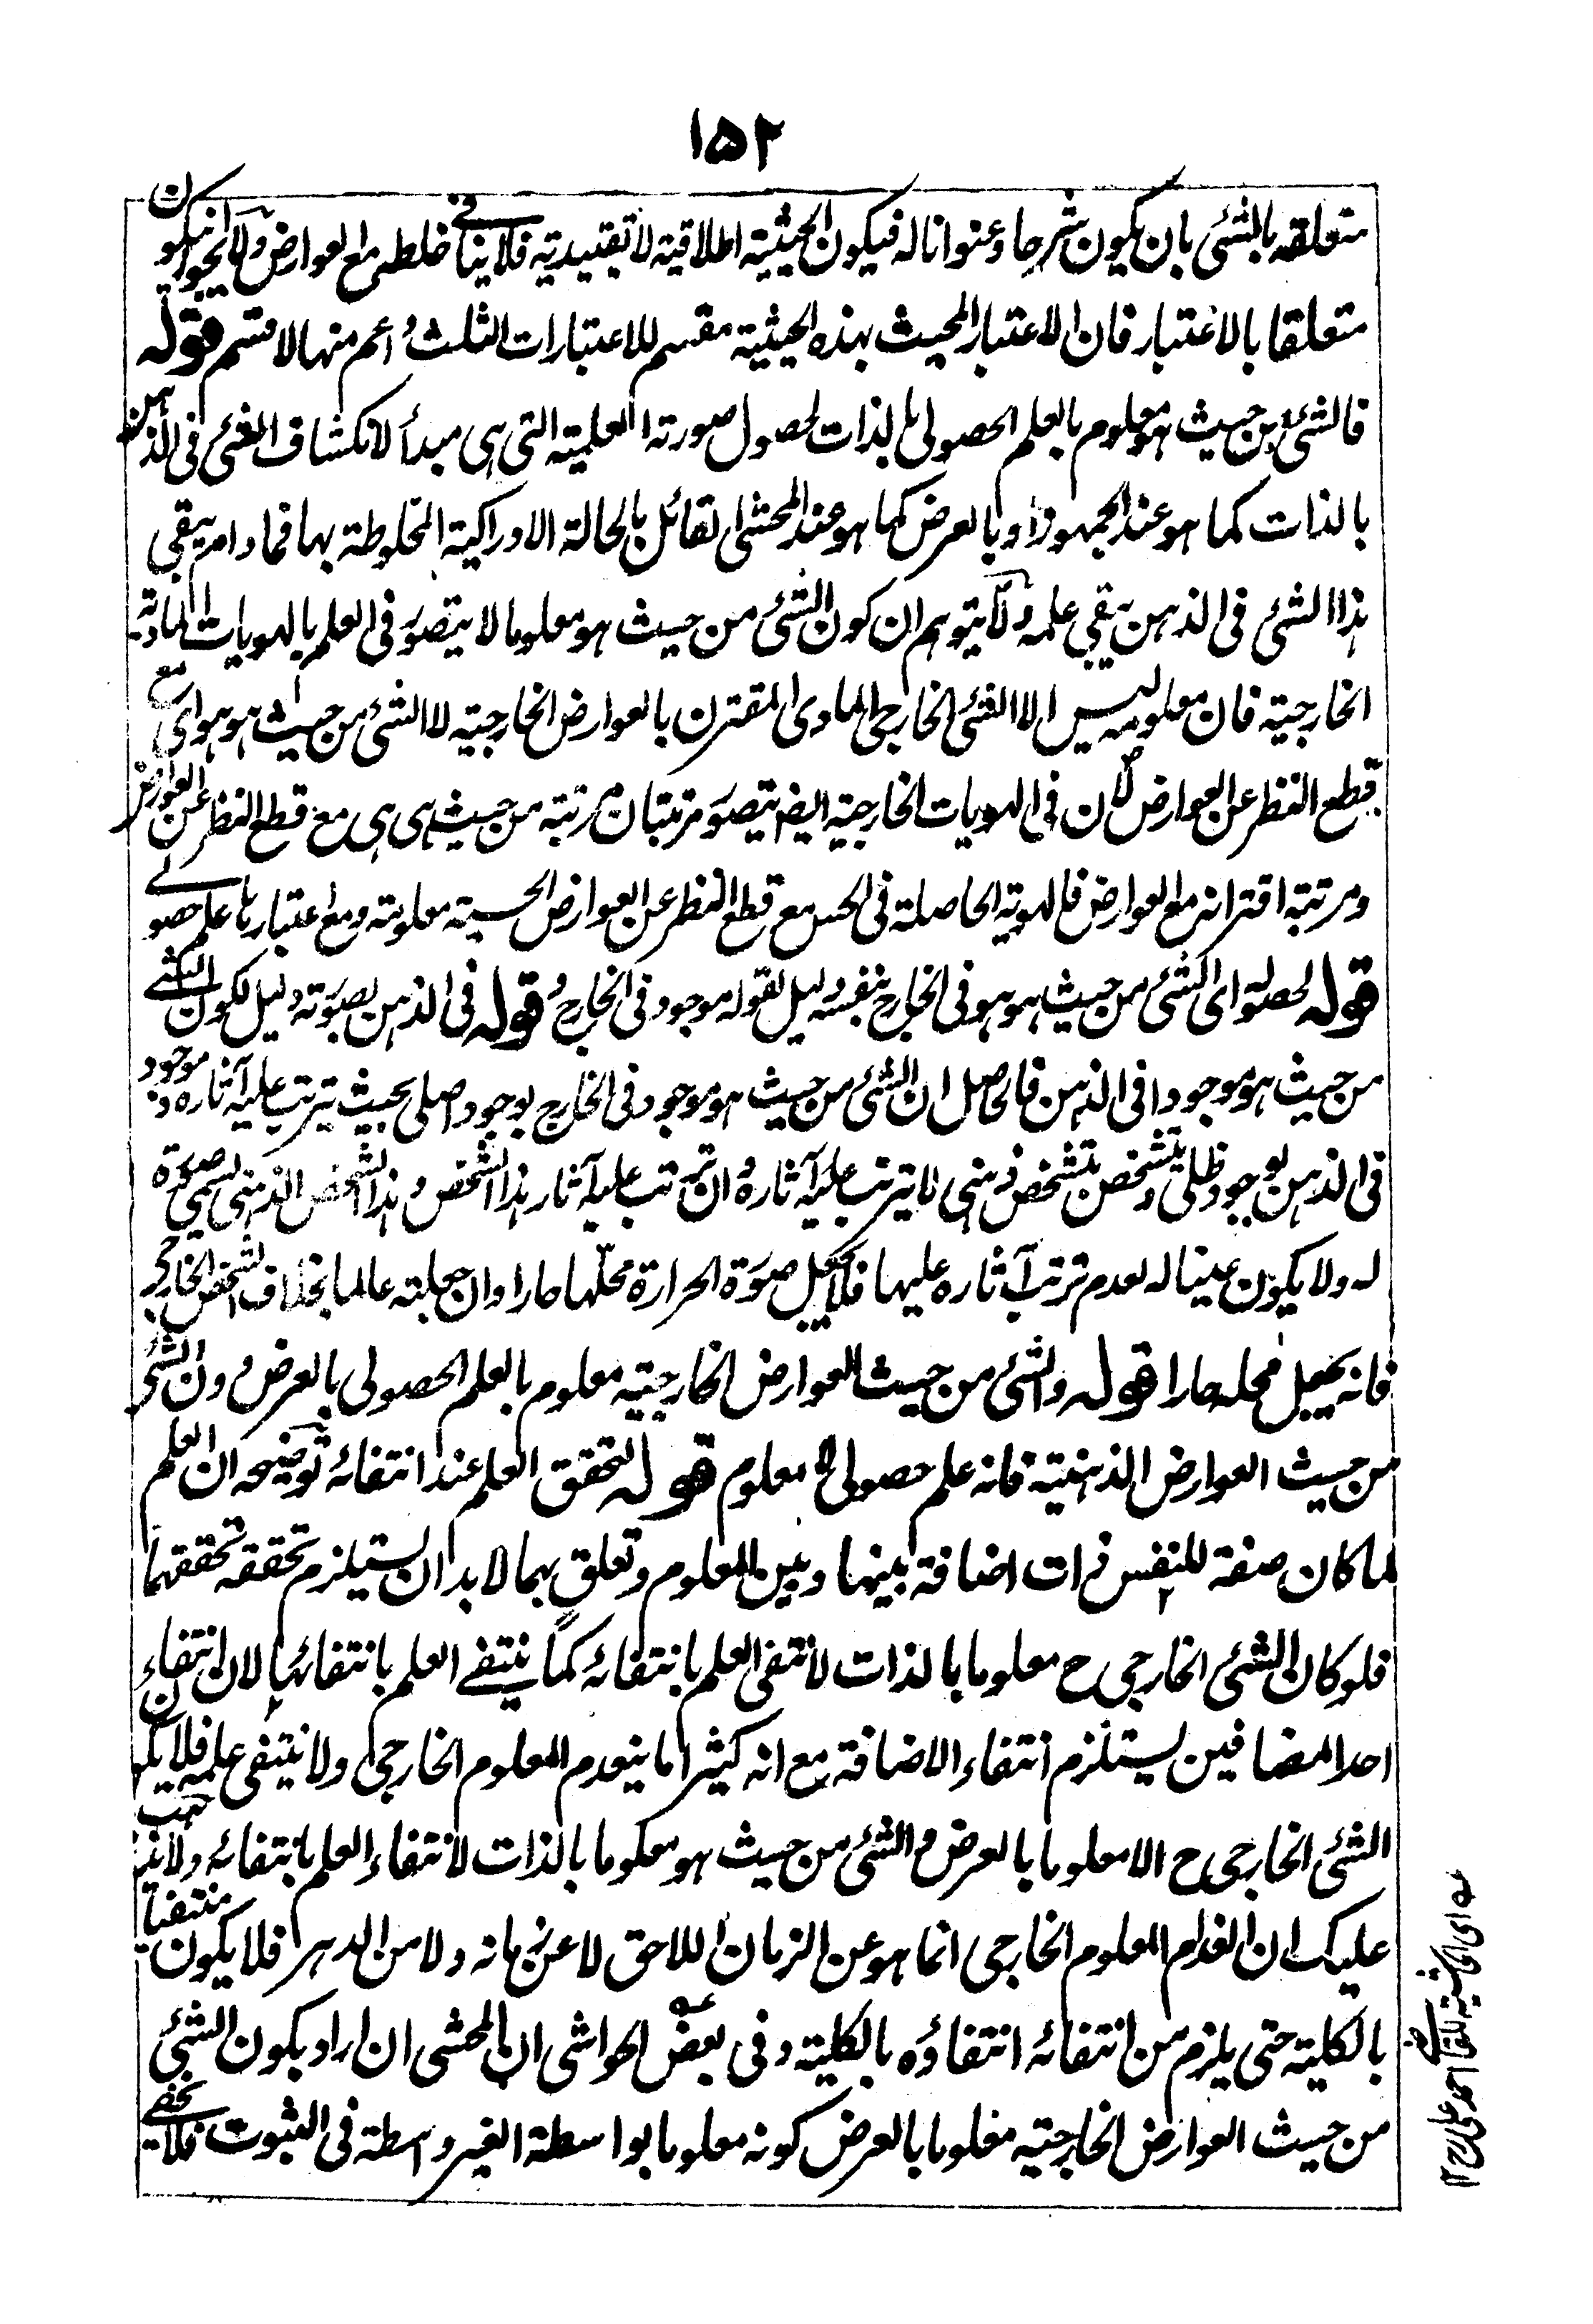 ۱۵۲
متعلقه بالشئ بان يكون شرحا وعنوانا له فيكون الحيثية اطلاقية لا تقييدية فلا ينافى خلطه مع العوارض ولا يجوز ان يكون
متعلقا بالاعتبار فان الاعتبار المحيث بهذه الحيثية مقسم للاعتبارات الثلث و اعم منها لا قسم قوله
فالشئ من حيث هو معلوم بالعلم الحصولى بالذات لحصول صورته العلمية التى هى مبدأ لانكشاف الشئ فى الذهن
بالذات كما هو عند الجمهور او بالعرض كما هو عند المحشى القائل بالحالة الادراكية المخلوطة بها فما دام يبقى
هذا الشئ فى الذهن يبقى علمه ولا يتوهم ان كون الشئ من حيث هو معلوما لا يتصور فى العلم بالهويات المادية
الخارجية فان معلومه ليس الا الشئ الخارجى المادى المقترن بالعوارض الخارجية لا الشئ من حيث هو هو اى مع
قطع النظر عن العوارض لان فى الهويات الخارجية ايضا يتصور مرتبتان مرتبة من حيث هى هى مع قطع النظر عن العوارض
ومرتبة اقترانه مع العوارض فالهوية الحاصلة فى الحس مع قطع النظر عن العوارض الحسية معلومة ومع اعتبارها علم حصولى
قوله لحصوله اى الشئ من حيث هو هو فى الخارج بنفسه دليل لقوله موجود فى الخارج و قوله فى الذهن بصورته دليل لكون الشئ
من حيث هو موجودا فى الذهن فالحاصل ان الشئ من حيث هو موجود فى الخارج بوجود اصلى بحيث يترتب عليه آثاره و موجود
فى الذهن بوجود ظلى و تشخص بتشخص ذهنى لا يترتب عليه آثاره و ان ترتب عليه آثار هذا الشخص و هذا الشخص الذهنى يسمى صورة
له ولا يكون عينا له لعدم ترتب آثاره عليها فلا يجعل صورة الحرارة محلها حارا وان جعلته عالما بخلاف الشخص الخارجى
فانه يجعل محله حارا قوله والشئ من حيث العوارض الخارجية معلوم بالعلم الحصولى بالعرض دون الشئ
من حيث العوارض الذهنية فانه علم حصولى لا معلوم قوله لتحقق العلم عند انتفائه توضيحه ان العلم
لما كان صفة للنفس ذات اضافة بينها وبين المعلوم وتعلق بهما لا بد ان يستلزم تحققه تحققهما
فلو كان الشئ الخارجى ح معلوما بالذات لانتفى العلم بانتفائه كما ينتفى العلم بانتفائها لان انتفاء
احد المضافين يستلزم انتفاء الاضافة مع انه كثيرا ما ينعدم المعلوم الخارجى ولا ينتفى علمه فلا يكون
الشئ الخارجى ح الا معلوما بالعرض و الشئ من حيث هو معلوما بالذات لانتفاء العلم بانتفائه ولا يذهب
عليك ان انعدام المعلوم الخارجى انما هو عن الزمان اللاحق لا عن زمانه ولا من الدهر فلا يكون منتفيا
بالكلية حتى يلزم من انتفائه انتفاؤه بالكلية و فى بعض الحواشى ان المحشى ان اراد بكون الشئ
من حيث العوارض الخارجية معلوما بالعرض كونه معلوما بواسطة الغير واسطة فى الثبوت فلا يخفى